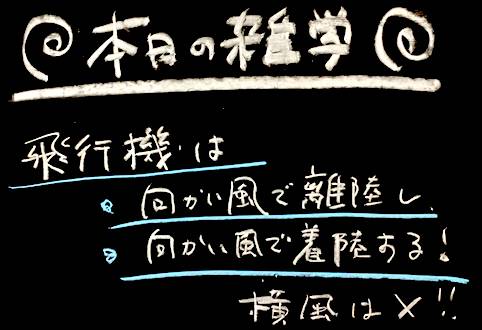 本日の雑学
飛行機は
向かい風で離陸し、
向かい風で着陸する!
横風は×!!